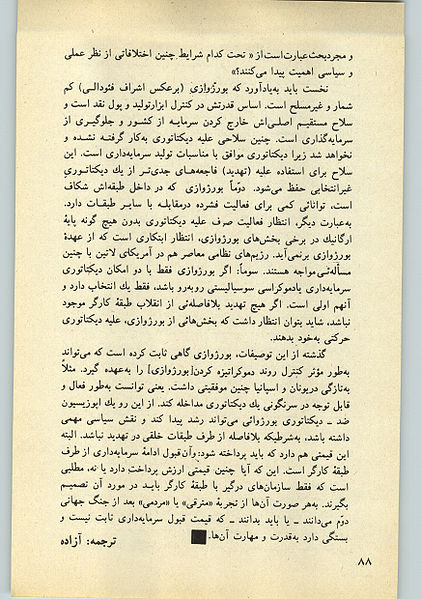 و مجرد بحث عبارت است از « تحت کدام شرایط چنین اختلافاتی از نظر عملی
و سیاسی اهمیت پیدا می‌کنند؟»
نخست باید به‌یاد‌آورد که بورژوازی (برعکس اشراف فئودالی) کم
شمار و غیرمسلح است. اساس قدرتش در کنترل ابزارتولید و پول نقد است و
سلاح مستقیم اصلی‌اش خارج کردن سرمایه از کشور و جلوگیری از
سرمایه‌گذاری است. چنین سلاحی علیه دیکتاتوری به‌کار گرفته نشده و
نخواهد شد زیرا دیکتاتوری موافق با مناسبات تولید سرمایه‌داری است. این
سلاح برای استفاده علیه (تهدید) فاجعه‌های جدی‌تر از یك دیکتاتوریِ
غیرانتخابی حفظ می‌شود. دوّماً بورژوازی که در داخل طبقه‌اش شکاف
است، توانائی کمی برای فعالیت فشرده درمقابله با سایر طبقات دارد.
به‌عبارت دیگر، انتظار فعالیت صرف علیه دیکتاتوری بدون هیچ گونه پایهٔ
ارگانیك در برخی بخش‌های بورژوازی، انتظار ابتکاری است که از عهدهٔ
بورژوازی برنمی‌آید. رژیم‌های نظامی معاصر هم در آمریکای لاتین با چنین
مسأله‌ئی مواجه هستند. سوماً: اگر بورژوازی فقط با دو امکان دیکتاتوری
سرمایه‌داری یادموکراسی سوسیالیستی روبه‌رو باشد، فقط یك انتخاب دارد و
آنهم اولی است. اگر هیچ تهدید بلافاصله‌ئی از انقلاب طبقهٔ کارگر موجود
نباشد، شاید بتوان انتظار داشت که بخش‌هائی از بورژوازی، علیه دیکتاتوری
حرکتی به‌خود بدهند.
گذشته از این توصیفات، بورژوازی گاهی ثابت کرده است که می‌تواند
به‌طور مؤثر کنترل روند دموکراتیزه کردن[بورژوازی] را به‌عهده گیرد. مثلاً
به‌تازگی دریونان و اسپانیا چنین موفقیتی داشت. یعنی توانست به‌طور فعال و
قابل توجه در سرنگونی یك دیکتاتوری مداخله کند. از این رو یك اپوزیسیون
ضد ـ دیکتاتوری بورژوائی می‌تواند رشد پیدا کند و نقش سیاسی مهمی
داشته باشد، به‌شرطیکه بلافاصله از طرف طبقات خلقی در تهدید نباشد. البته
این قیمتی هم دارد که باید پرداخته شود: و آن قبول ادامهٔ سرمایه‌داری از طرف
طبقهٔ کارگر است. این که آیا چنین قیمتی ارزش پرداخت دارد یا نه، مطلبی
است که فقط سازمان‌های درگیر با طبقهٔ کارگر باید در مورد آن تصمیم
بگیرند. به‌هر صورت آن‌ها از تجربهٔ «مترقی» یا «مردمی» بعد از جنگ جهانی
دوّم می‌دانند ـ یا باید بدانند ـ که قیمت قبول سرمایه‌داری ثابت نیست و
بستگی دارد به‌قدرت و مهارت آن‌ها.
ترجمه: آزاده
۸۸